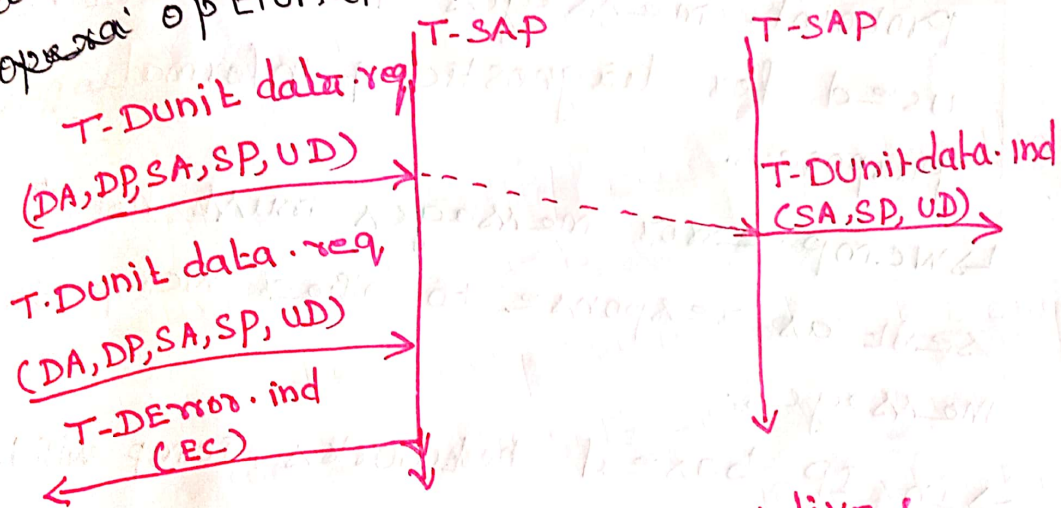 T-SAP
T-SAP
T-DUnit data.req
(DA, DP, SA, SP, UD)
T-DUnitdata.ind
(SA, SP, UD)
T.DUnit data.req
(DA, DP, SA, SP, UD)
T-DError.ind
(EC)